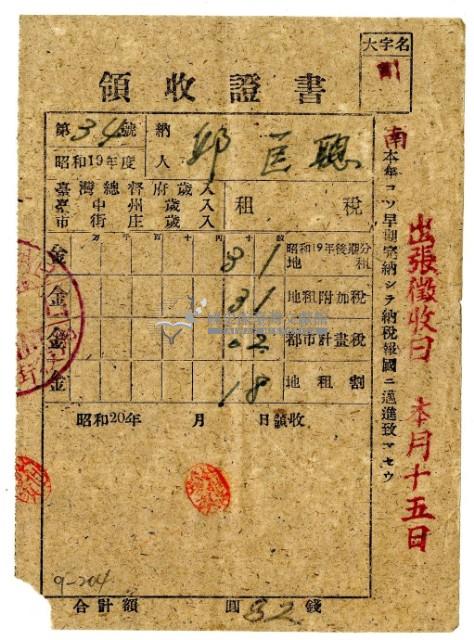 大字名
領收證書
第34號
納
人
邱
聰
昭和19年度
臺灣總督府歲入
臺中州歲入
市街庄歲入
租稅
金
31
昭和19年後期分
地租
金
31
地租附加稅
金
02
都市計畫稅
金
18
地租割
昭和20年 月 日領收
9-204
合計額 圓82錢
南
本年コソ早期完納シテ納稅報國ニ邁進致マセウ
出張徵收日 本月十五日